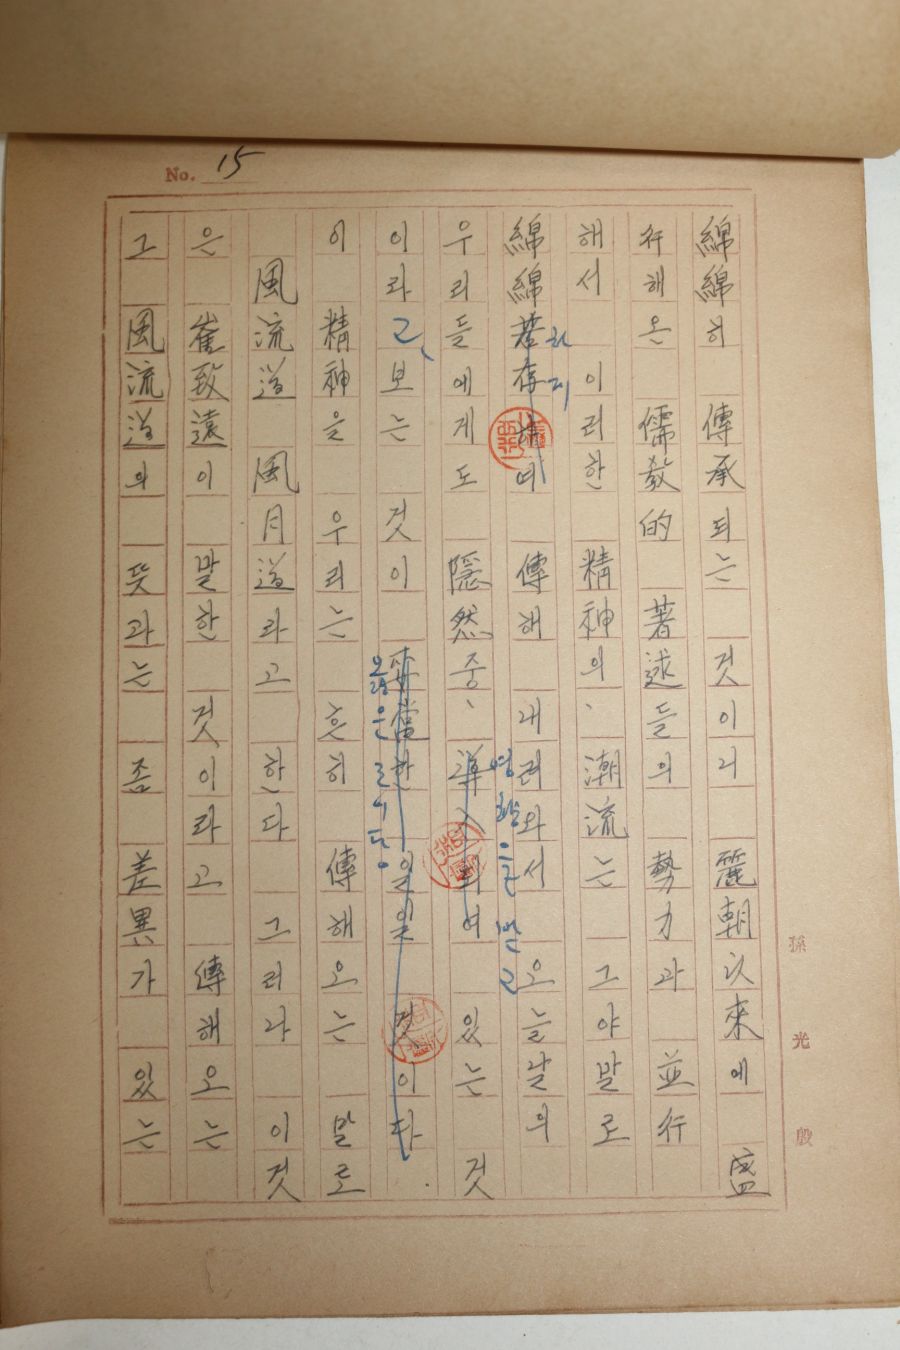 No. 15
綿綿히 傳承되는 것이니 麗朝以來에 盛
行해 온 儒教的 著述들의 勢力과 並行
해서 이러한 精神의、潮流는 그야말로
綿綿若存 예 傳해 내려와서 오늘날의
우리들에게도 隱然중、 되여 있는 것
영향을 받고
이라고、보는 것이 妥當한 일일 것이다.
옳은 것이다。
이 精神을 우리는 흔히 傳해오는 말로
風流道 風月道라고 한다 그러나 이것
은 崔致遠이 말한 것이라고 傳해오는
그 風流道의 뜻과는 좀 差異가 있는
孫 光 殷